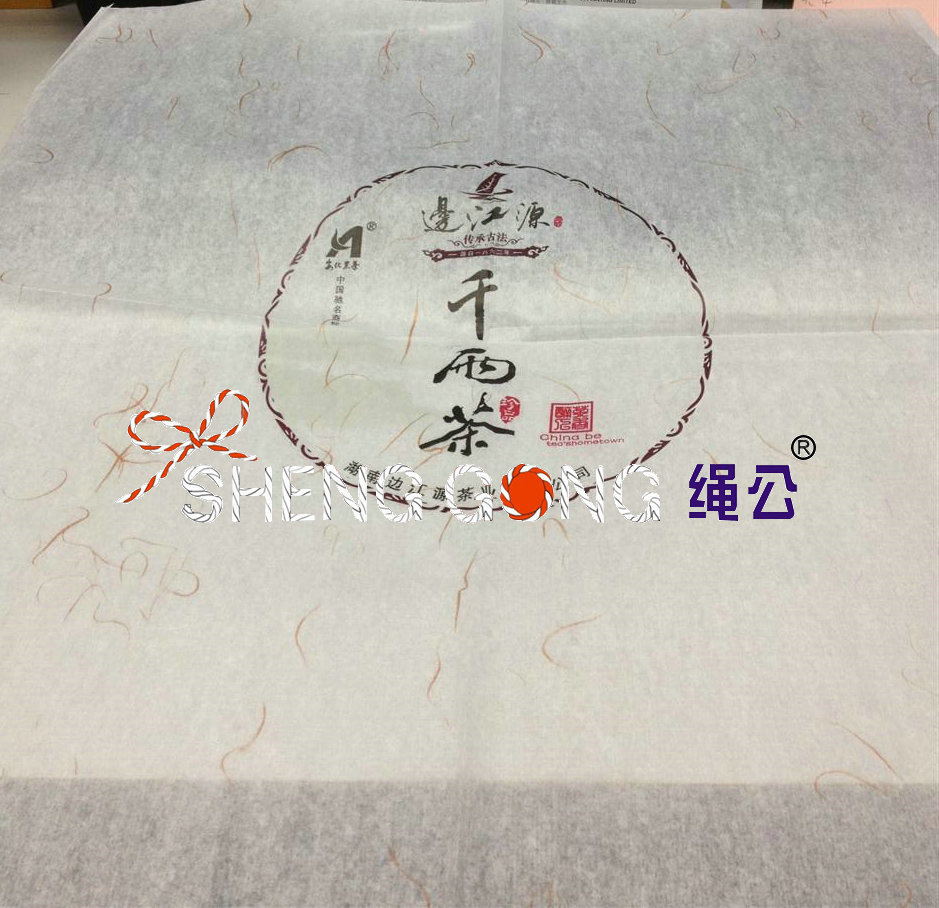 邊江源
传承古法
源自一八六二年
®
安化黑茶
中国驰名商标
千兩茶
China be
tea'shometown
湖南边江源茶业
公司
SHENG GONG 绳公®